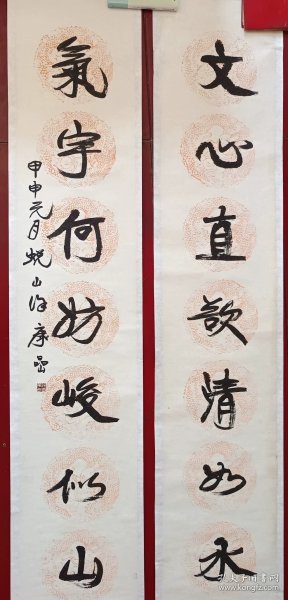 文心直欲清如水
氣宇何妨峻似山
甲申元月蜕山许康
孔夫子旧书网